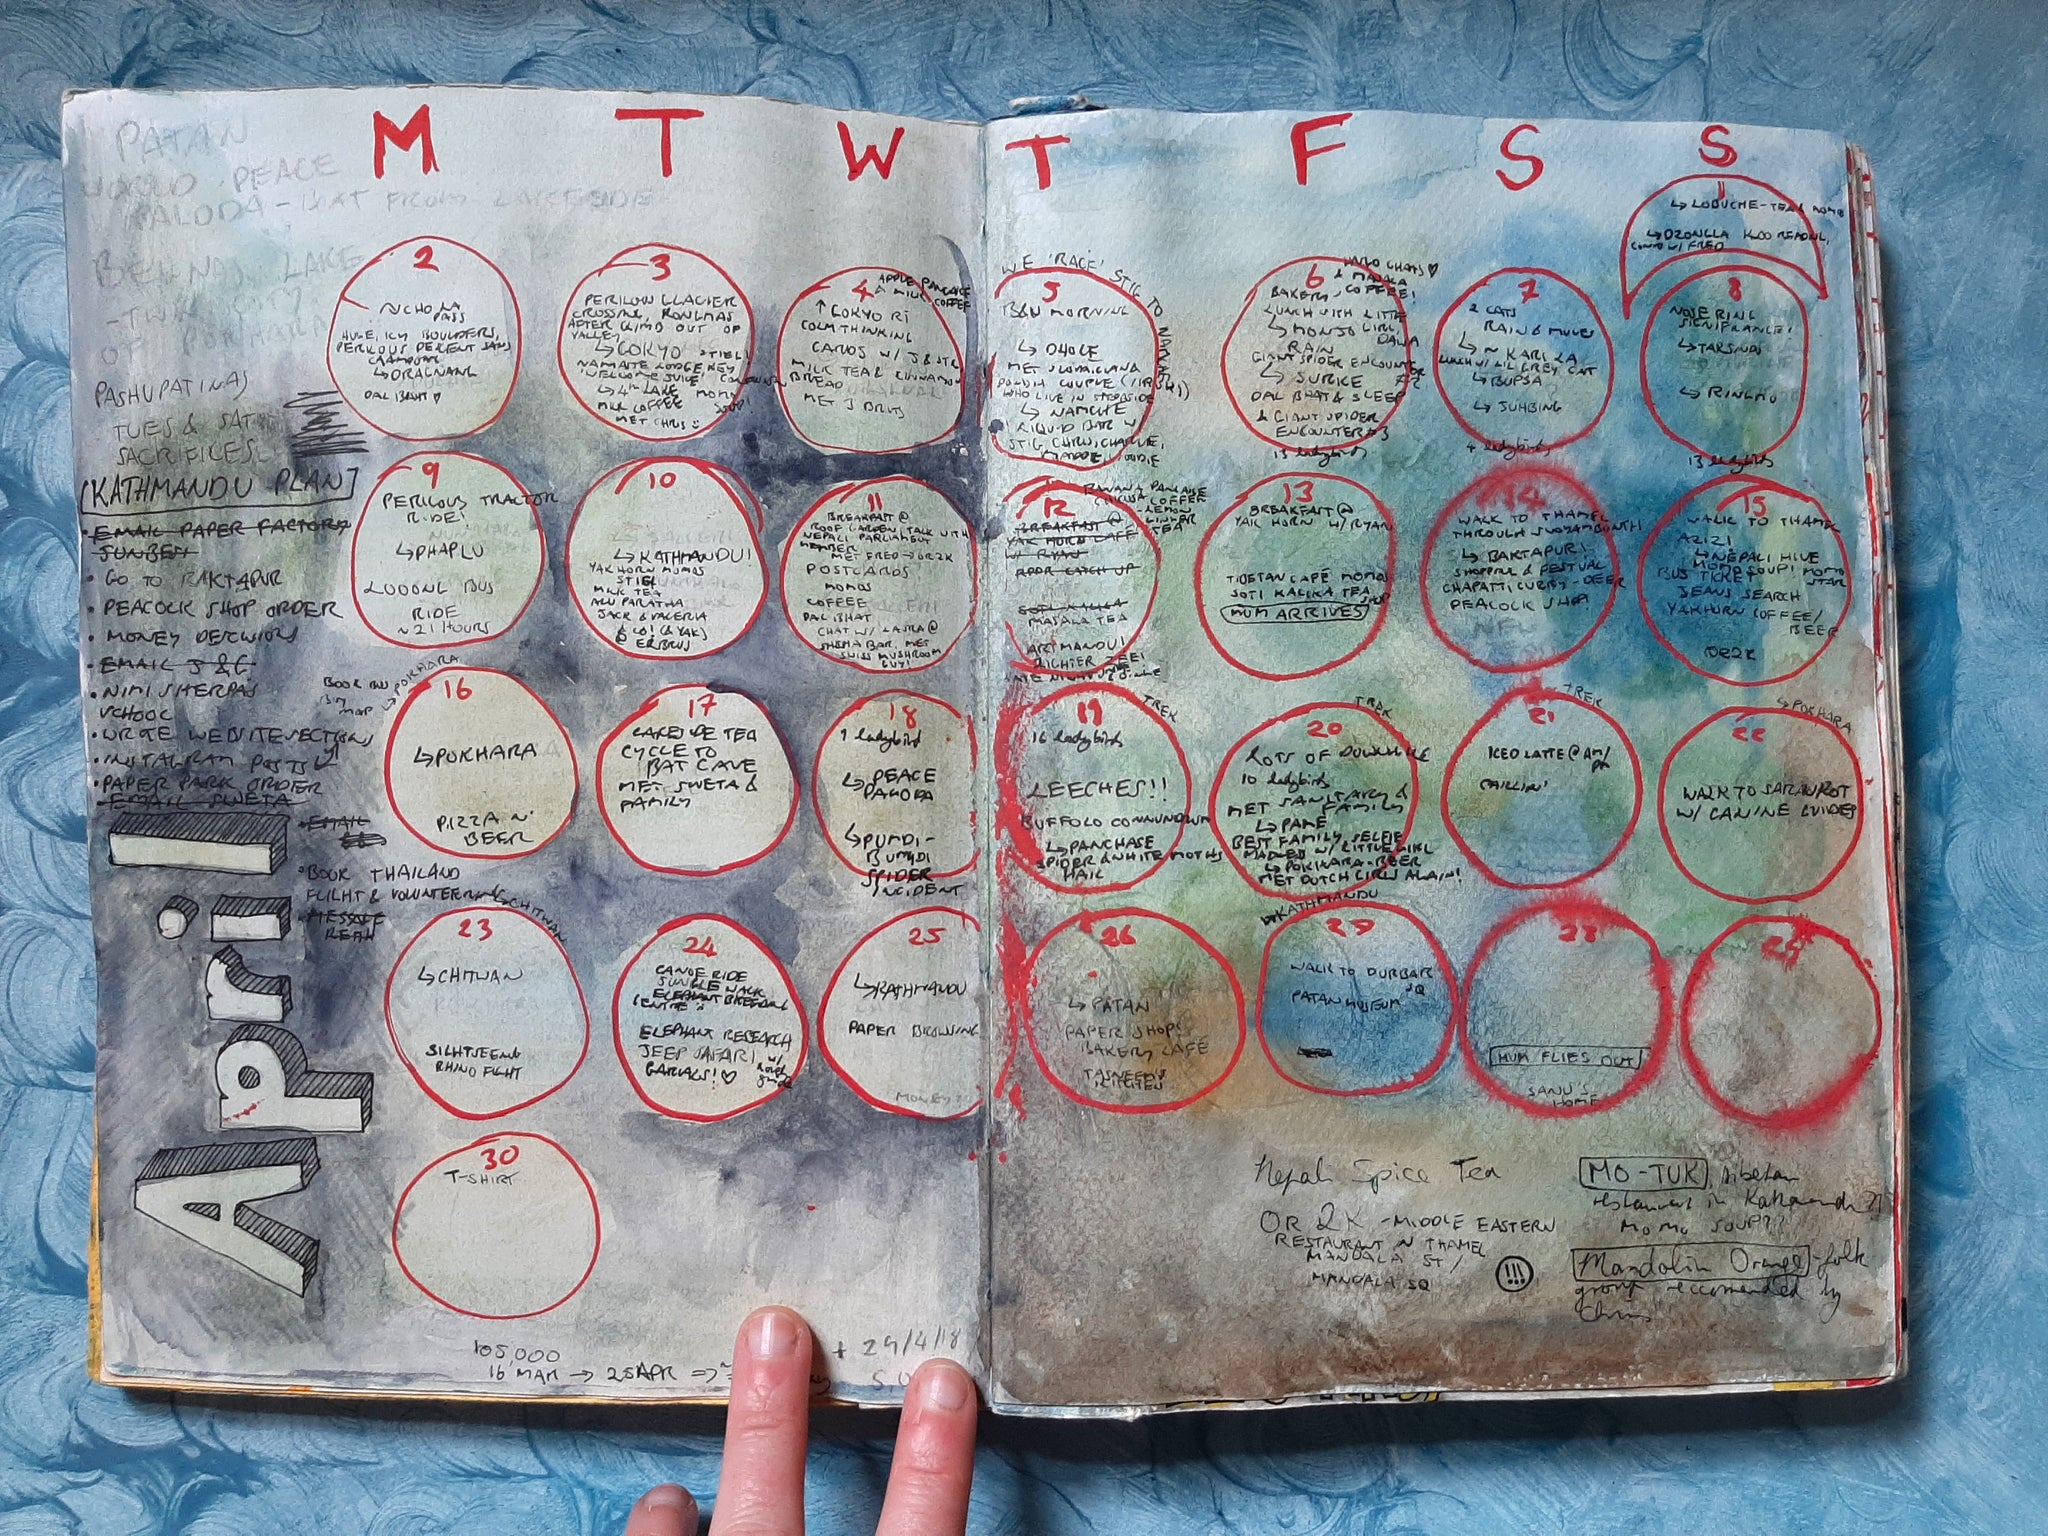 M T W T F S S
PATAN
WORLD PEACE
PAGODA - BOAT FROM LAKESIDE
BEGNAS LAKE
PASHUPATINAS
TUES & SAT
SACRIFICES
[KATHMANDU PLAN]
• EMAIL PAPER FACTORY
• GO TO BAKTAPUR
• PEACOCK SHOP ORDER
• MONEY DECISIONS
• EMAIL J & C
• NIMI SHERPAS
SCHOOL
• WRITE WEBSITE SECTIONS
• INSTAGRAM POSTS
• PAPER PARK ORDER
EMAIL SWETA
• EMAIL
• BOOK THAILAND
FLIGHT & VOLUNTEERING
• MESSAGE
April
1
↳ LOBUCHE - TEA & MOMO
↳ DZONGLA
W/ FRED
2
~ CHO LA
PASS
HUGE, ICY BOULDERS,
PERILOUS DESCENT SANS
CRAMPONS
↳ DRAGNANG
DAL BHAT ♥
3
PERILOUS GLACIER
CROSSING,
AFTER CLIMB OUT OF
VALLEY
↳ GOKYO
NAMASTE LODGE, KEY
WELCOME JUICE!
↳ 4TH LAKE MOMO
MILK COFFEE SOUP!
MET CHRIS :)
4
APPLE PANCAKE
& MILK COFFEE
↑ GOKYO RI
CALM THINKING
CARDS W/ J & STR
MILK TEA & CINNAMON
BREAD
MET 3 BRITS
WE 'RACE' STIG TO NAMCHE
5
↳ DHOLE
MET
WHO LIVE IN
↳ NAMCHE
LIQUID BAR W
STIG, CHRIS, CHARLIE,
MADDIE,
6
BAKERY, COFFEE!
LUNCH WITH LITTLE
↳ MONJO GIRL,
DAWA
RAIN
GIANT SPIDER ENCOUNTER
↳ SURKE
DAL BHAT & SLEEP
& GIANT SPIDER
ENCOUNTER #3
13 ladybirds
7
2 CATS
RAIN & MULES
↳ ~ KARI LA
LUNCH W/ LIL GREY CAT
↳ BUPSA
↳ JUHBING
4 ladybirds
8
NOSE RING
SIGNIFICANCE!
↳ TAKSINDO
↳ RINGMO
13 ladybirds
9
PERILOUS TRACTOR
RIDE!
↳ PHAPLU
LOOONG BUS
RIDE
~ 21 HOURS
10
↳ KATHMANDU!
YAK HORN MOMOS
STIG!
MILK TEA
ALU PARATHA
JACK & VALERIA
& CO! (& YAK)
@ ERBRUS
11
BREAKFAST @
ROOF GARDEN, TALK WITH
NEPALI PARLIAMENT
MEMBER
MET FRED → OR2K
POSTCARDS
MOMOS
COFFEE
DAL BHAT
CHAT W/ LASTA @
SHISHA BAR, MET
SWISS MUSHROOM
GUY!
12
BANANA PANCAKE
BREAKFAST @
YAK HORN CAFÉ
W/ RYAN
MASALA TEA
ARTMANDU!
13
BREAKFAST @
YAK HORN W/ RYAN
TIBETAN CAFÉ MOMOS
SOTI KALIKA TEA
SHOP
MUM ARRIVES
14
WALK TO THAMEL
THROUGH SWOYAMBUNTH
↳ BAKTAPUR!
SHOPPING & FESTIVAL
CHAPATTI CURRY - BEER
PEACOCK SHOP!
15
WALK TO THAMEL
↳ NEPALI HIVE
MOMO SOUP! MOMO
STAR
BUS TICKET
JEANS SEARCH
YAKHORN COFFEE/
BEER
OR2K
BOOK BUS → POKHARA
BUY
MAP
16
↳ POKHARA
PIZZA N'
BEER
17
LAKESIDE TEA
CYCLE TO
BAT CAVE
MET SWETA &
FAMILY
18
9 ladybirds
↳ PEACE
PAGODA
↳ PUMDI-
BUMDI
SPIDER
INCIDENT
TREK
19
16 ladybirds
LEECHES!!
BUFFOLO CONNUNDRUM
↳ PANCHASE
SPIDER & WHITE MOTHS
HAIL
TREK
20
LOTS OF DOWNHILL
10 ladybirds
MET SANITARY &
FAMILY
↳ PAME
BEST FAMILY SELFIE
MADNESS W/ LITTLE GIRL
↳ POKHARA - BEER
MET DUTCH GIRLS AGAIN!
TREK
21
ICED LATTE @ AM/
PM
CHILLIN'
↳ POKHARA
22
WALK TO SARANKOT
W/ CANINE GUIDES
↳ CHITWAN
23
↳ CHITWAN
SIGHTSEEING
RHINO FIGHT
24
CANOE RIDE
JUNGLE WALK
ELEPHANT BREEDING
CENTRE :(
ELEPHANT RESEARCH
JEEP SAFARI W/
GARIALS! ♥
25
↳ KATHMANDU
PAPER BROWSING
MONEY??
26
↳ PATAN
PAPER SHOPS
BAKERY CAFÉ
TASNEEM'S
KITCHEN
↳ KATHMANDU
27
WALK TO DURBAR
SQ
PATAN MUSEUM
28
MUM FLIES OUT
SANU'S
HOME
29
30
T-SHIRT
Nepali Spice Tea
OR 2K - MIDDLE EASTERN
RESTAURANT IN THAMEL
MANDALA ST /
MANDALA SQ
!!!
MO-TUK, tibetan
restaurant in Kathmandu??
MOMO SOUP??
Mandolin Orange - folk
group reccomended by
Chris
105,000
16 MAR → 25 APR ⇒
+ 29/4/18